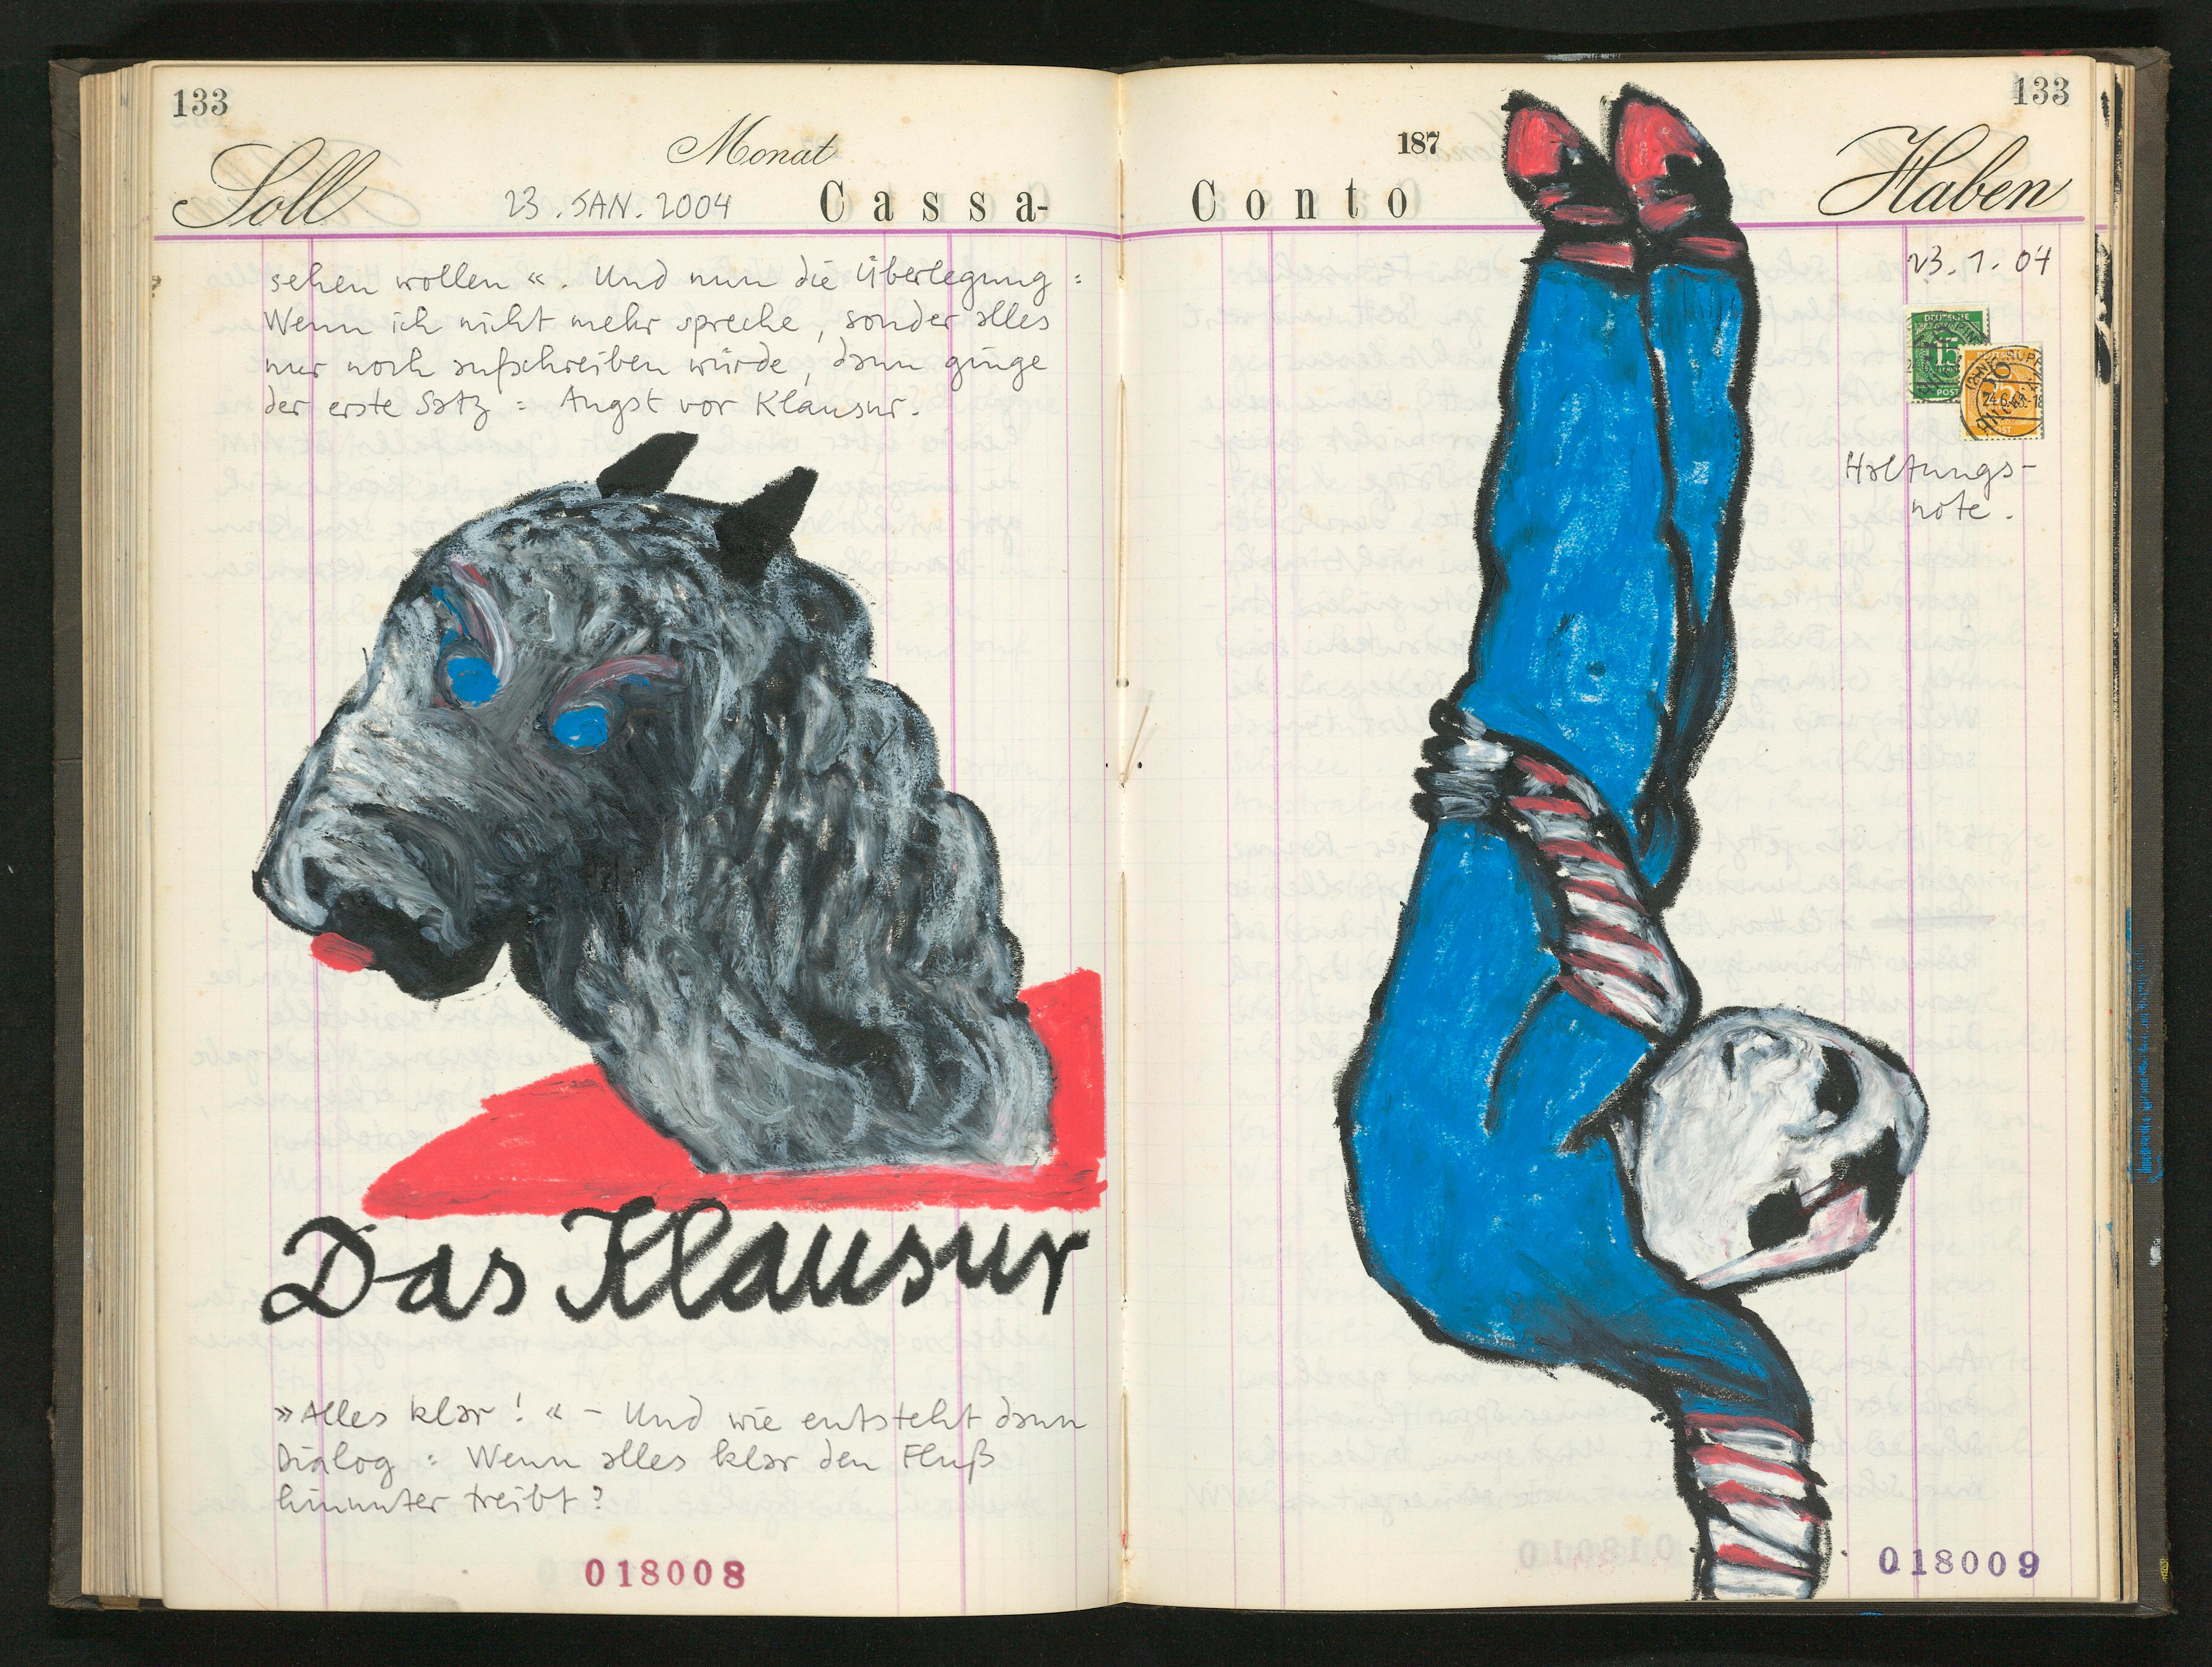 133
Soll
Monat
23. JAN. 2004
Cassa-
sehen wollen «. Und nun die Überlegung :
Wenn ich nicht mehr spreche, sonder alles
nur noch aufschreiben würde, dann ginge
der erste Satz : Angst vor Klausur.
Das Klausur
» Alles klar ! « – Und wie entsteht dann
Dialog : Wenn alles klar den Fluß
hinunter treibt ?
018008
133
187
Conto
Haben
23. 1. 04
DEUTSCHE
15
POST
24.6.48.-18
Haltungs-
note.
018009